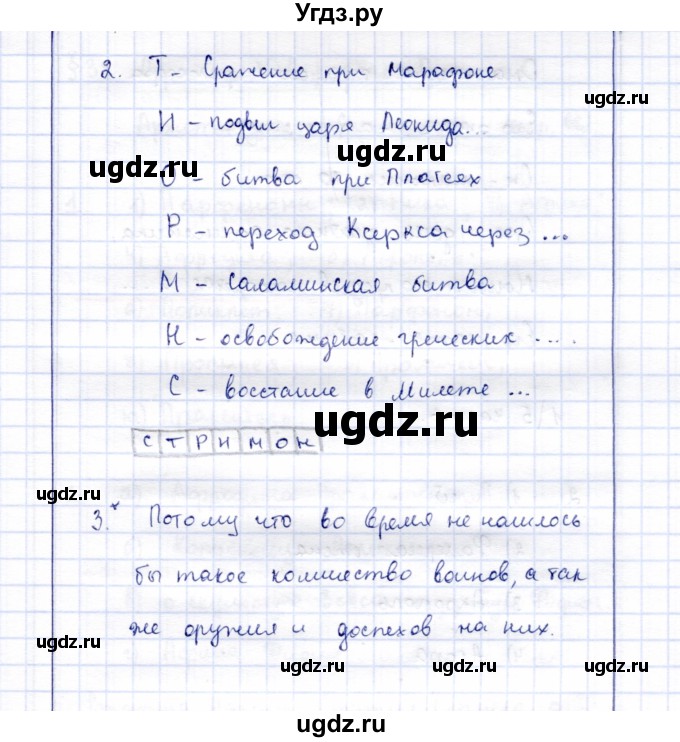 Угдз.ру
2. Т - Сражение при Марафоне
ugdz.ru
И - подвиг царя Леонида...
ugdz.ru
ugdz.ru
О - битва при Платеях
Р - переход Ксеркса через ...
М - Саламинская битва
ugdz.ru
Н - освобождение греческих ....
С - восстание в Милете ...
ugdz.ru
С Т Р И М О Н
ugdz.ru
3.* Потому что во время не нашлось
ugdz.ru
бы такое количество воинов, а так
же оружия и доспехов на них.
ugdz.ru
ugdz.ru
ugdz.ru
ugdz.ru
ugdz.ru